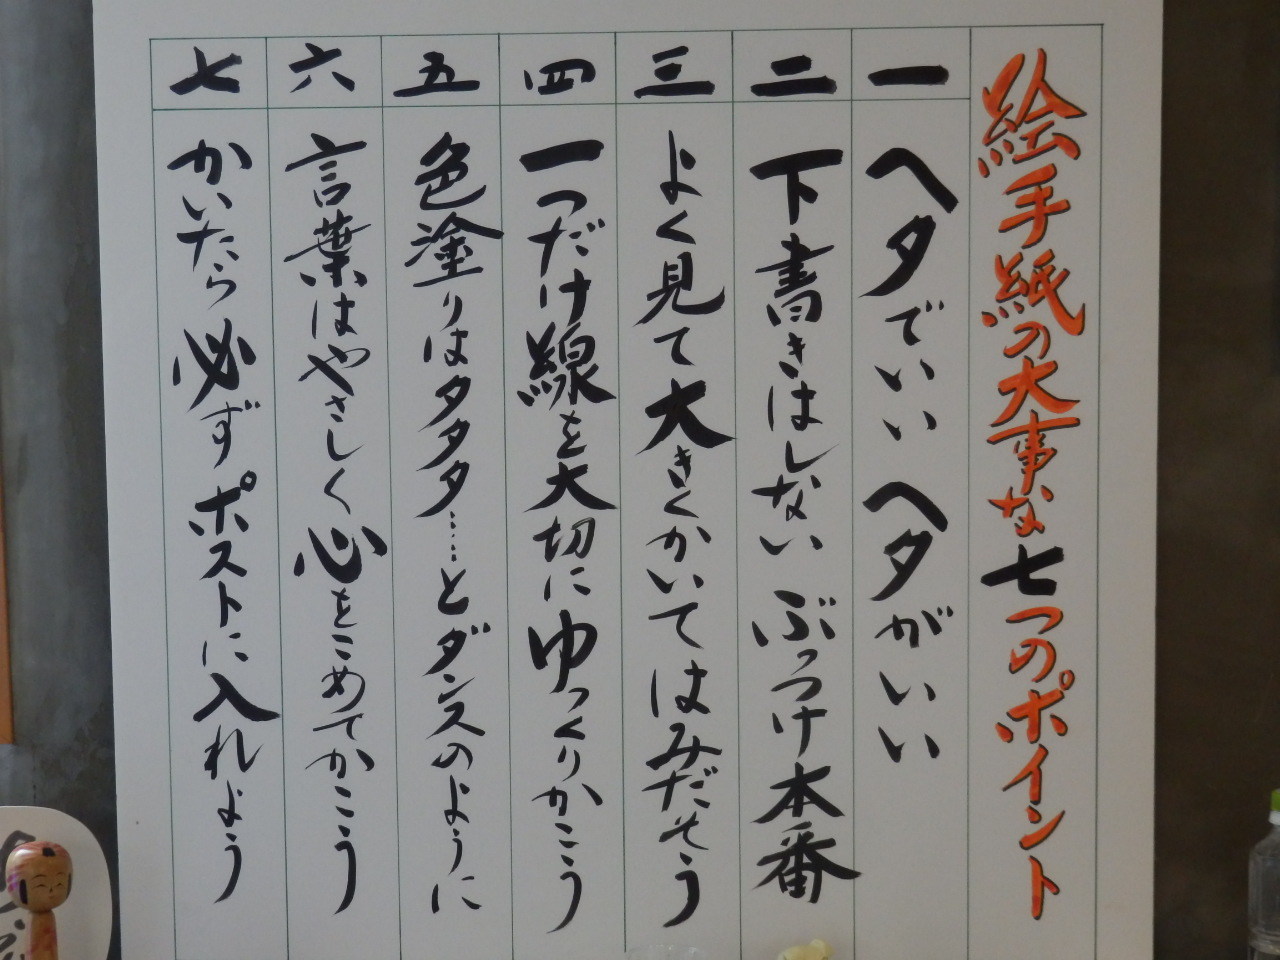 絵手紙の大事な七つのポイント
一 ヘタでいい ヘタがいい
二 下書きはしない ぶっつけ本番
三 よく見て大きくかいてはみだそう
四 一つだけ線を大切にゆっくりかこう
五 色塗りはタタタ……とダンスのように
六 言葉はやさしく心をこめてかこう
七 かいたら必ずポストに入れよう